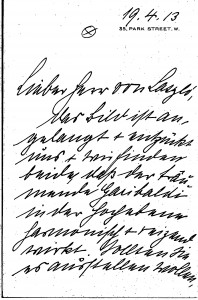 19.4.13
35, PARK STREET. W.
Lieber Herr von Laszló,
das Bild ist an-
gelangt + entzückt
uns + wir finden
beide daß der träu-
mende Garibaldi
in der Hochebene
harmonisch + reizend
wirkt. Sollten Sie
es ausstellen wollen,